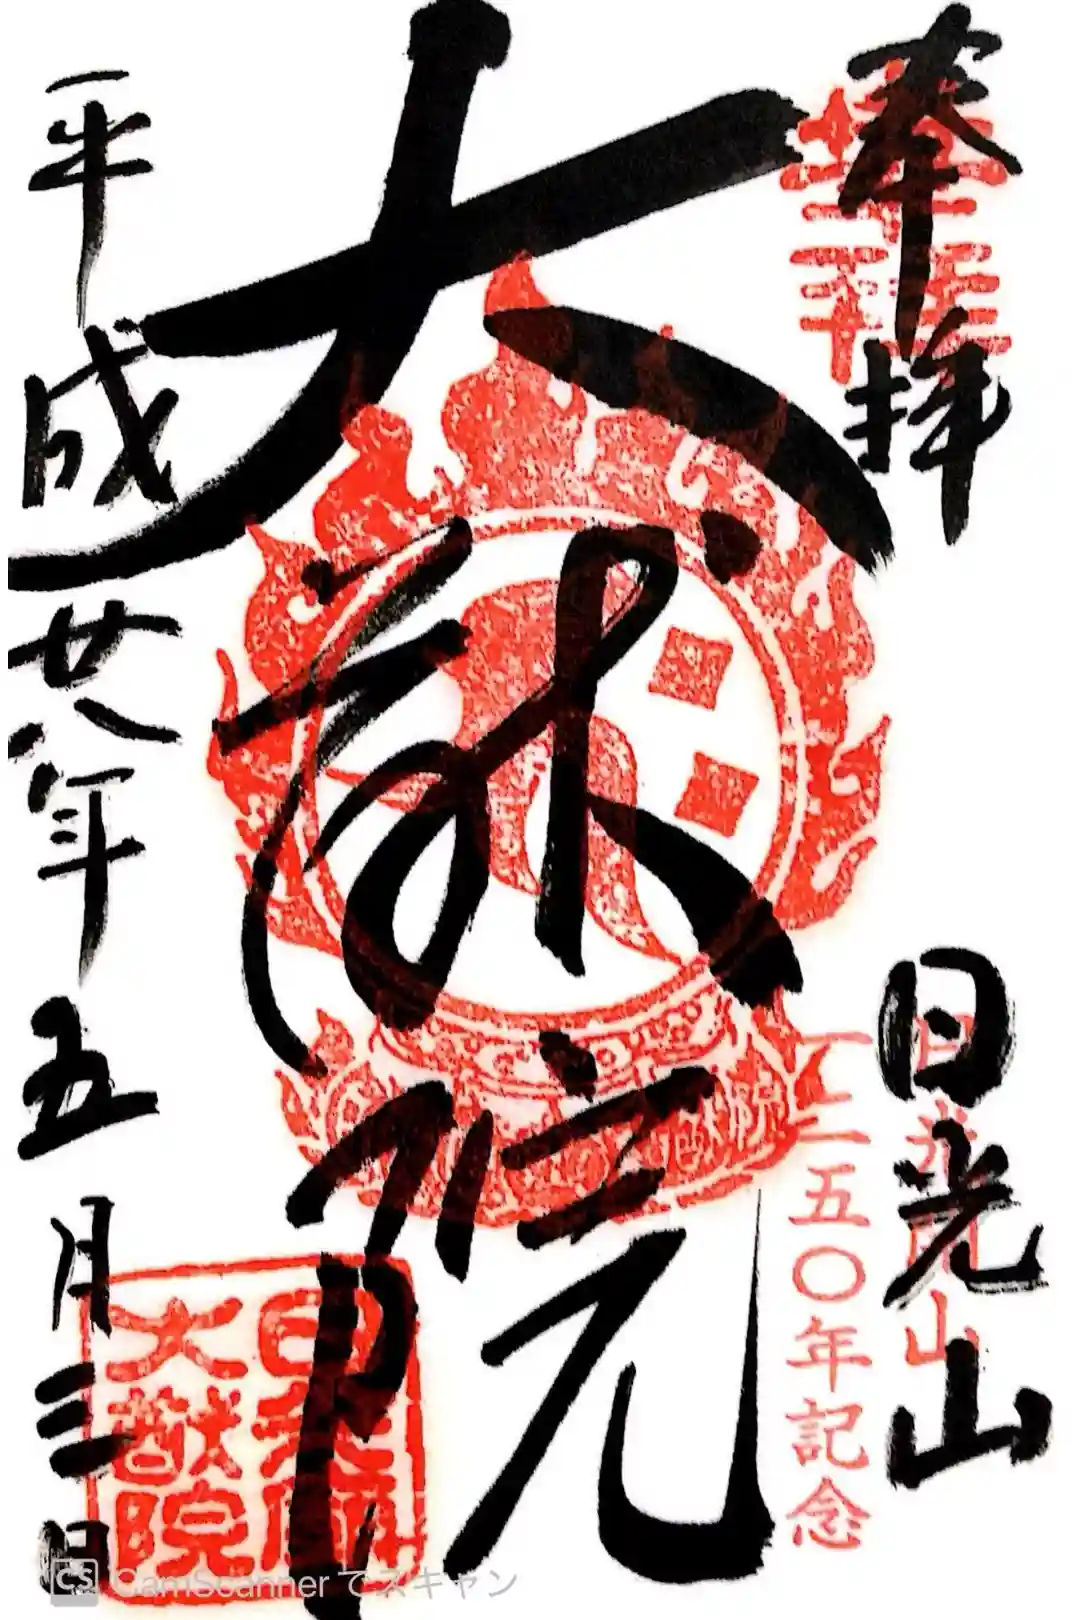 奉拝
日光山
日光開山
一二五〇年記念
大猷院
平成廿八年五月三日
大猷院
CamScanner でスキャン